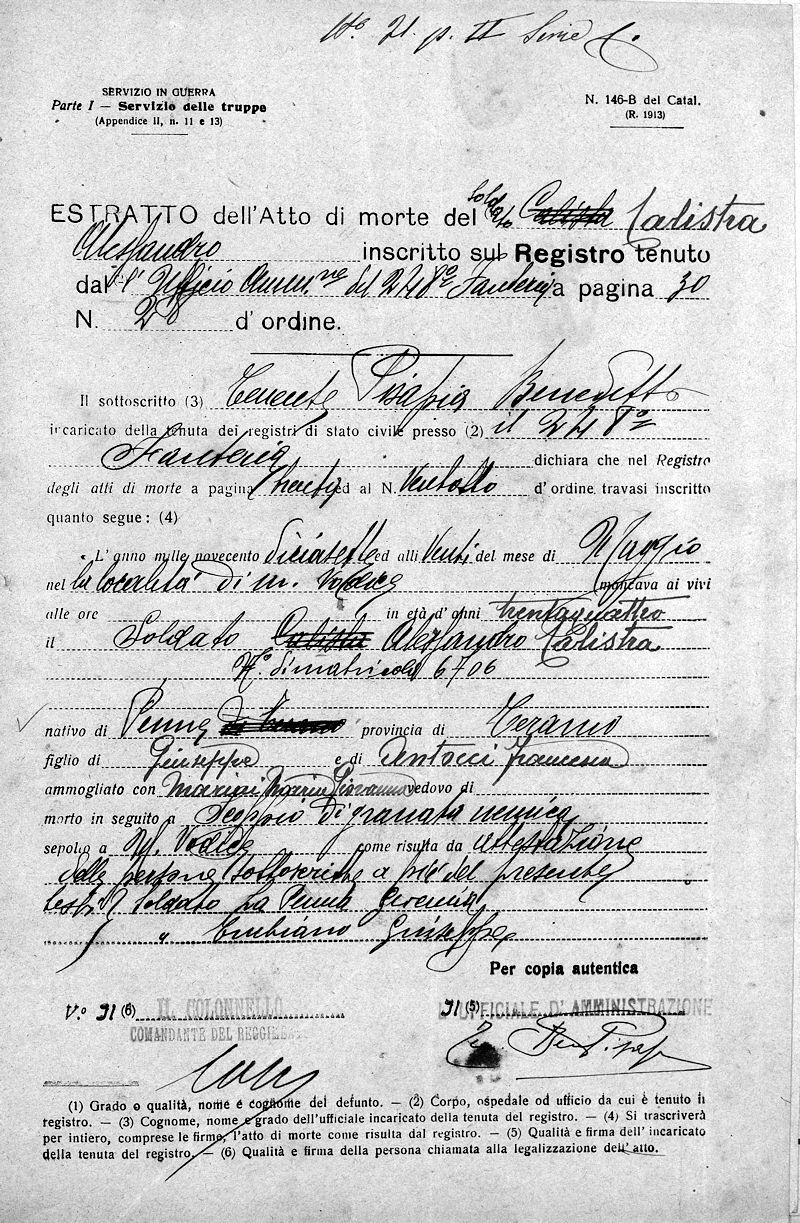 N.º 21. p. II Serie C.
SERVIZIO IN GUERRA
Parte I — Servizio delle truppe
(Appendice II, n. 11 e 13)
N. 146-B del Catal.
(R. 1913)
ESTRATTO dell'Atto di morte del soldato Calista Calistra
Alessandro inscritto sul Registro tenuto
dall'Ufficio Amm.ne del 248º Fanteria a pagina 30
N. 28 d'ordine.
Il sottoscritto (3) Tenente Pisapia Benedetto
incaricato della tenuta dei registri di stato civile presso (2) il 248º
Fanteria dichiara che nel Registro
degli atti di morte a pagina trenta ed al N. Ventotto d'ordine travasi inscritto
quanto segue: (4)
« L'anno mille novecento diciasette ed alli Venti del mese di Maggio
nel la località di m. Vodice mancava ai vivi
alle ore in età d'anni trentaquattro
il Soldato Calista Alessandro Calistra
N.º di matricola 6706
nativo di Penne provincia di Teramo
figlio di Giuseppe e di Antocci Francesca
ammogliato con Mariai Maria Giovanna vedovo di
morto in seguito a Scoppio di granata nemica
sepolto a M. Vodice come risulta da attestazione
delle persone sottoscritte a piè del presente
testi soldato La Penna Geremia
" Giuseppe
Per copia autentica
V.º Il (6) IL COLONNELLO
COMANDANTE DEL REGGIM
Il (5) L'UFFICIALE D'AMMINISTRAZIONE
(1) Grado o qualità, nome e cognome del defunto. — (2) Corpo, ospedale od ufficio da cui è tenuto il
registro. — (3) Cognome, nome e grado dell'ufficiale incaricato della tenuta del registro. — (4) Si trascriverà
per intiero, comprese le firme, l'atto di morte come risulta dal registro. — (5) Qualità e firma dell'incaricato
della tenuta del registro. — (6) Qualità e firma della persona chiamata alla legalizzazione dell'atto.